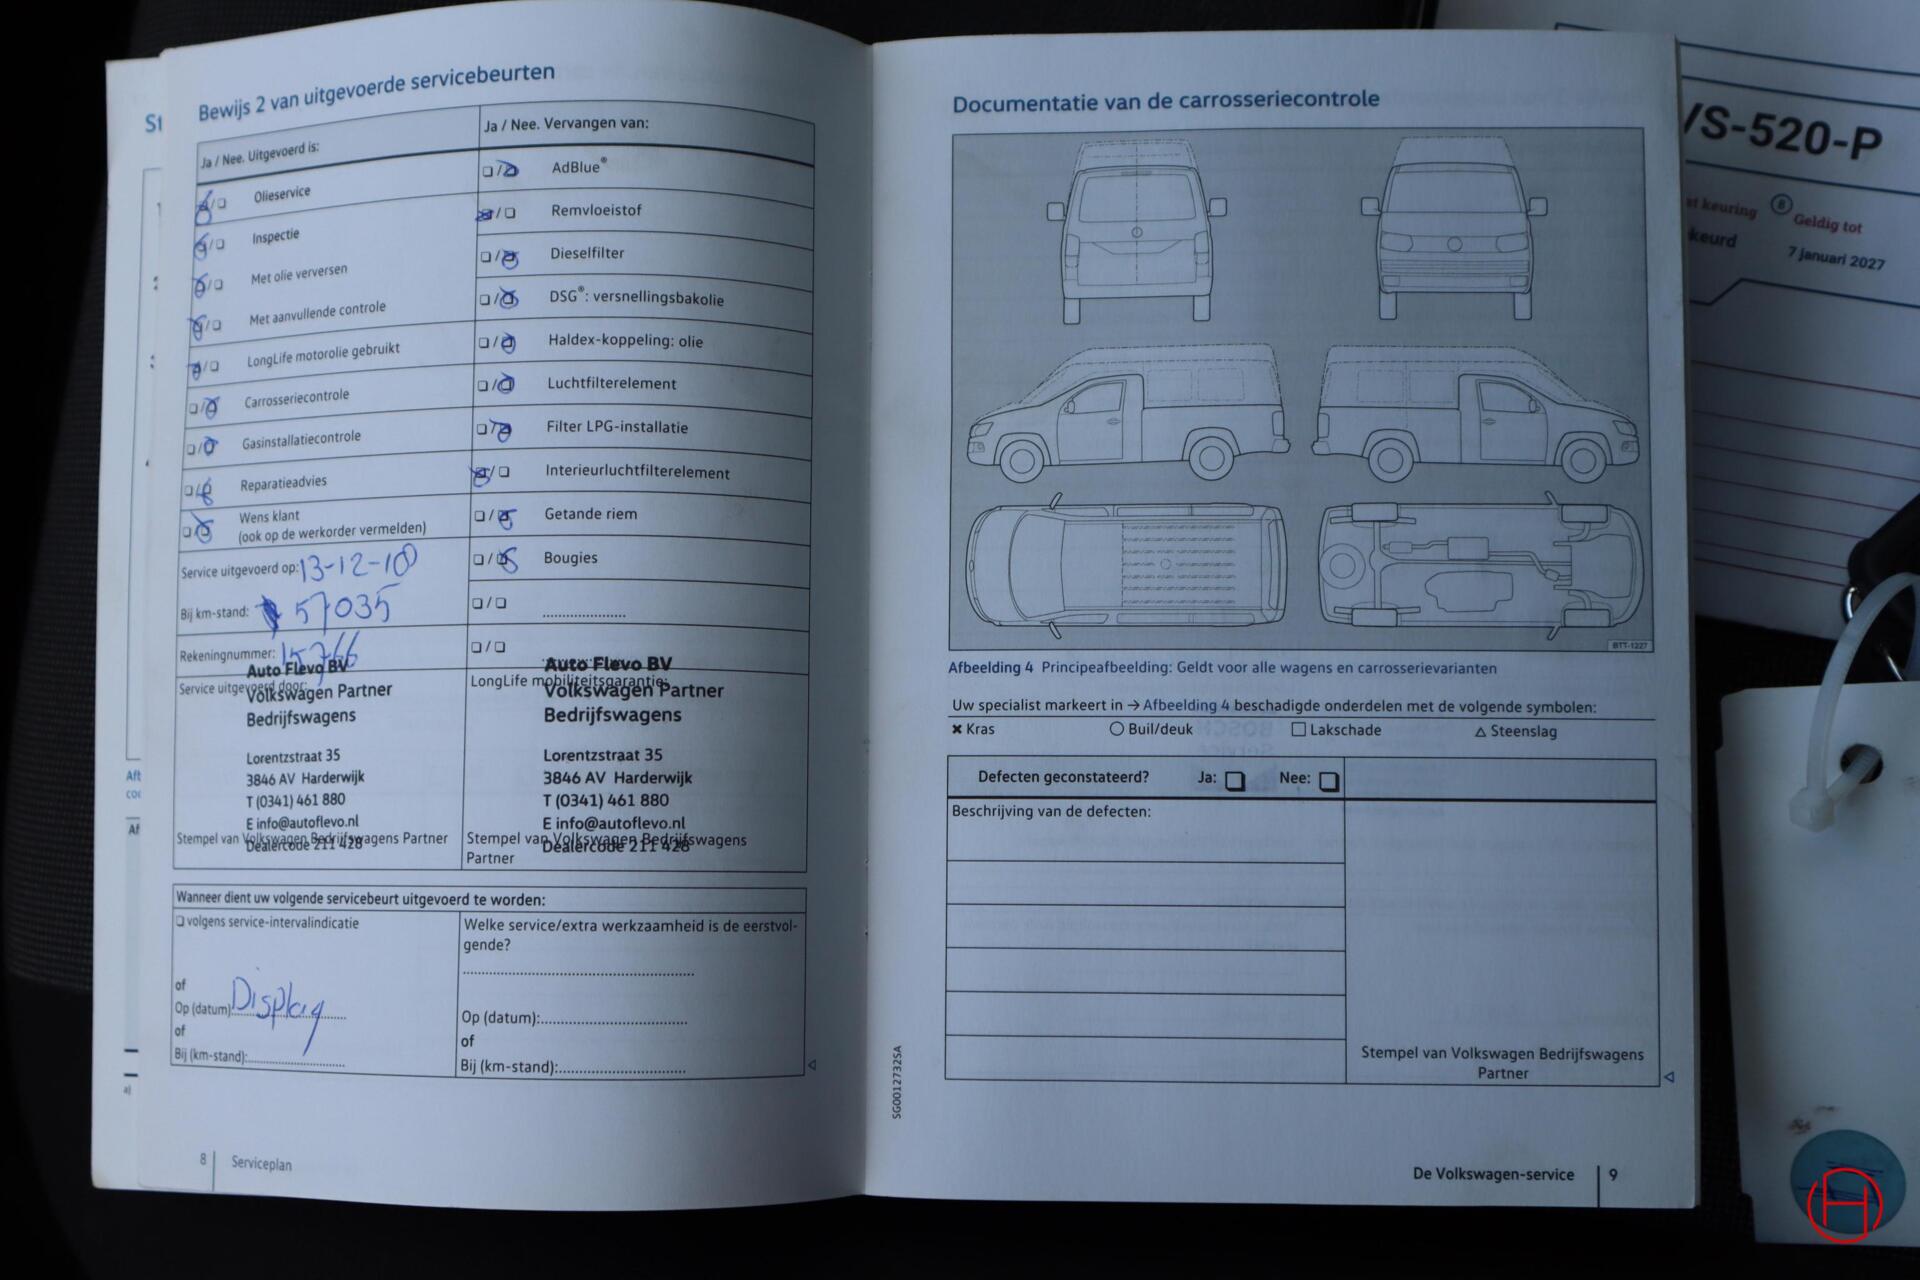 Bewijs 2 van uitgevoerde servicebeurten
Ja / Nee. Uitgevoerd is:
Olieservice
Inspectie
Met olie verversen
Met aanvullende controle
LongLife motorolie gebruikt
Carrosseriecontrole
Gasinstallatiecontrole
Reparatieadvies
Wens klant
(ook op de werkorder vermelden)
Service uitgevoerd op: 13-12-18
Bij km-stand: 57035
Rekeningnummer: 15766
Service uitgevoerd door:
Auto Flevo BV
Volkswagen Partner
Bedrijfswagens
Lorentzstraat 35
3846 AV Harderwijk
T (0341) 461 880
E info@autoflevo.nl
Dealercode 211 428
Stempel van Volkswagen Bedrijfswagens Partner
Ja / Nee. Vervangen van:
AdBlue®
Remvloeistof
Dieselfilter
DSG®: versnellingsbakolie
Haldex-koppeling: olie
Luchtfilterelement
Filter LPG-installatie
Interieurluchtfilterelement
Getande riem
Bougies
LongLife mobiliteitsgarantie:
Auto Flevo BV
Volkswagen Partner
Bedrijfswagens
Lorentzstraat 35
3846 AV Harderwijk
T (0341) 461 880
E info@autoflevo.nl
Dealercode 211 428
Stempel van Volkswagen Bedrijfswagens
Partner
Wanneer dient uw volgende servicebeurt uitgevoerd te worden:
volgens service-intervalindicatie
of
Op (datum): Display
of
Bij (km-stand):
Welke service/extra werkzaamheid is de eerstvol-
gende?
Op (datum):
of
Bij (km-stand):
8 Serviceplan
Documentatie van de carrosseriecontrole
BTT-1227
Afbeelding 4 Principeafbeelding: Geldt voor alle wagens en carrosserievarianten
Uw specialist markeert in → Afbeelding 4 beschadigde onderdelen met de volgende symbolen:
✖ Kras ○ Buil/deuk □ Lakschade △ Steenslag
Defecten geconstateerd? Ja: Nee:
Beschrijving van de defecten:
Stempel van Volkswagen Bedrijfswagens
Partner
SG0012732SA
De Volkswagen-service 9
VS-520-P
keuring
8 Geldig tot
7 januari 2027